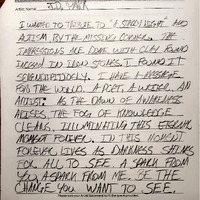 Artist Name: J.D. PACK
I WANTED TO TRIBUTE TO "A STARRY NIGHT" AND
AUTISM BY THE MISSING CORNER. THE
IMPRESSIONS ARE DONE WITH CLAY FOUND
INDIAN IN IRON STONES. I FOUND IT
SERENDIPITOUSLY. I HAVE A MESSAGE
FOR THE WORLD. A POET, A WRITER, AN
ARTIST. AS THE DAWN OF AWARENESS
ARISES THE FOG OF KNOWLEDGE
CLEARS, ILLUMINATING THIS ETERNAL
MOMENT FOREVER. IN THIS MOMENT
FOREVER LIVES AS DARKNESS
FOR ALL TO SEE. A SPARK FROM
YOU, A SPARK FROM ME. BE THE
CHANGE YOU WANT TO SEE.